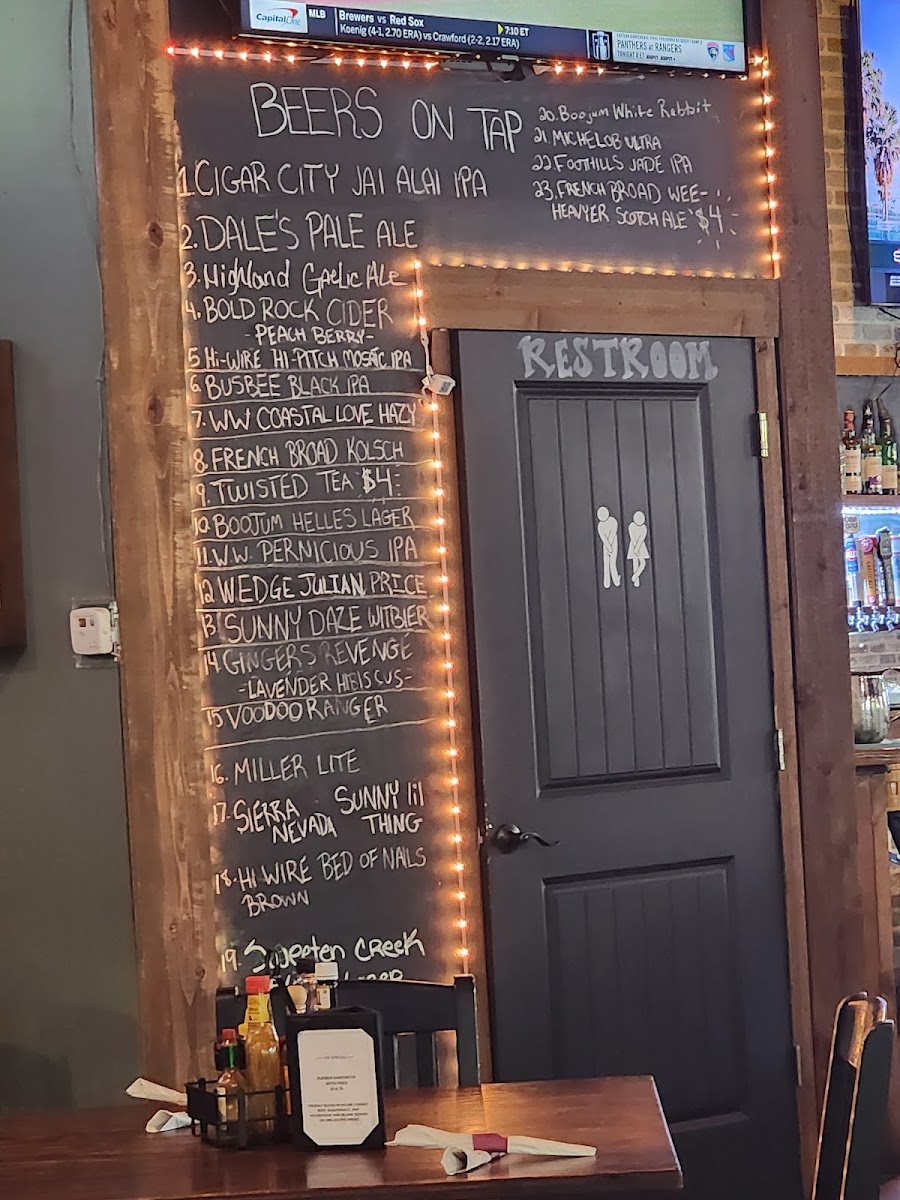 Capital One
MLB
Brewers vs Red Sox
7:10 ET
Koenig (4-1, 2.70 ERA) vs Crawford (2-2, 2.17 ERA)
PANTHERS at RANGERS
TONIGHT 8 ET
BEERS ON TAP
1. CIGAR CITY JAI ALAI IPA
2. DALE'S PALE ALE
3. Highland Gaelic Ale
4. BOLD ROCK CIDER
- PEACH BERRY -
5 Hi-WIRE Hi-PITCH MOSAIC IPA
6 BUSBEE BLACK IPA
7. WW COASTAL LOVE HAZY
8. FRENCH BROAD KOLSCH
9. TWISTED TEA $4
10. BOOJUM HELLES LAGER
11. W.W. PERNICIOUS IPA
12 WEDGE JULIAN PRICE
13 SUNNY DAZE WITBIER
14 GINGERS REVENGE
- LAVENDER HIBISCUS -
15 VOODOO RANGER
16. MILLER LITE
17. SIERRA NEVADA SUNNY lil THING
18. Hi WIRE BED OF NAILS
BROWN
19. Sweeten Creek
20. Boojum White Rabbit
21. MICHELOB ULTRA
22. FOOTHILLS JADE IPA
23. FRENCH BROAD WEE-
HEAVYER SCOTCH ALE $4
RESTROOM